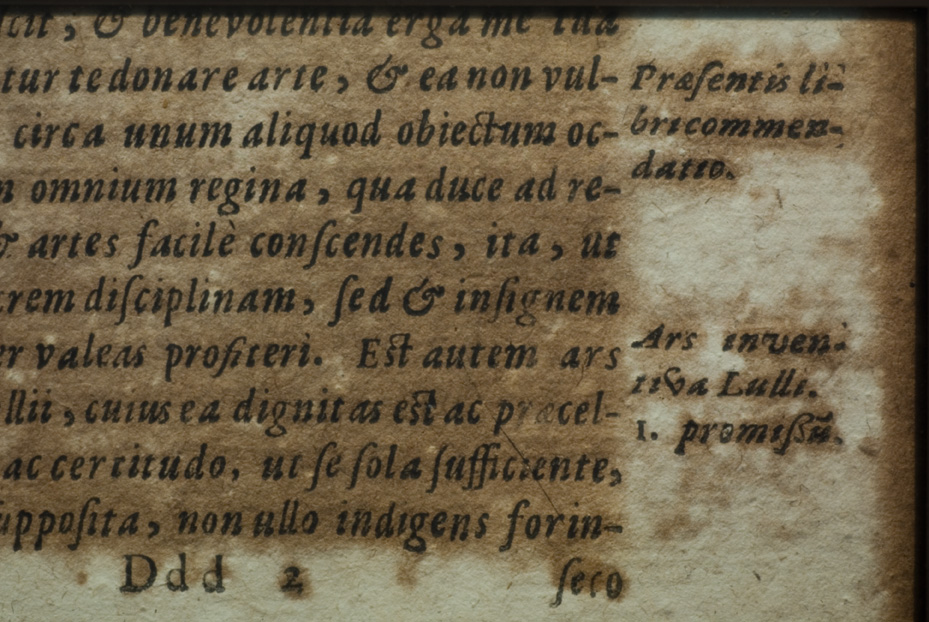 cit, & benevolentia erga me tua
tur te donare arte, & ea non vul-
circa unum aliquod obiectum oc-
omnium regina, qua duce ad re-
& artes facilè conſcendes, ita, ut
rem diſciplinam, ſed & inſignem
valeas profiteri. Eſt autem ars
llii, cuius ea dignitas eſt ac præcel-
ac certitudo, ut ſe ſola ſufficiente,
uppoſita, non ullo indigens forin-
Ddd 2 ſeco
Præſentis li-
bri commen-
datio.
Ars inven-
tiva Lulli.
1. promiſſũ.